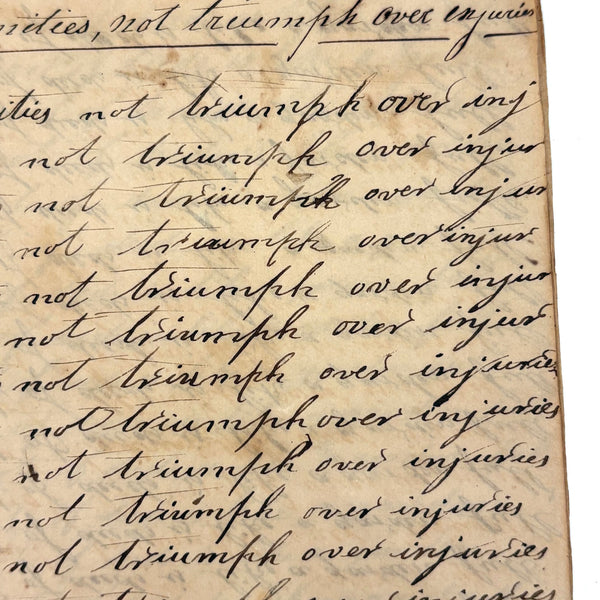 nities, not triumph over injuries
ities not triumph over inj
not triumph over injur
not triumph over injur
not triumph over injur
not triumph over injur
not triumph over injur
not triumph over injuries
not triumph over injuries
not triumph over injuries
not triumph over injuries
not triumph over injuries
triumph over injuries